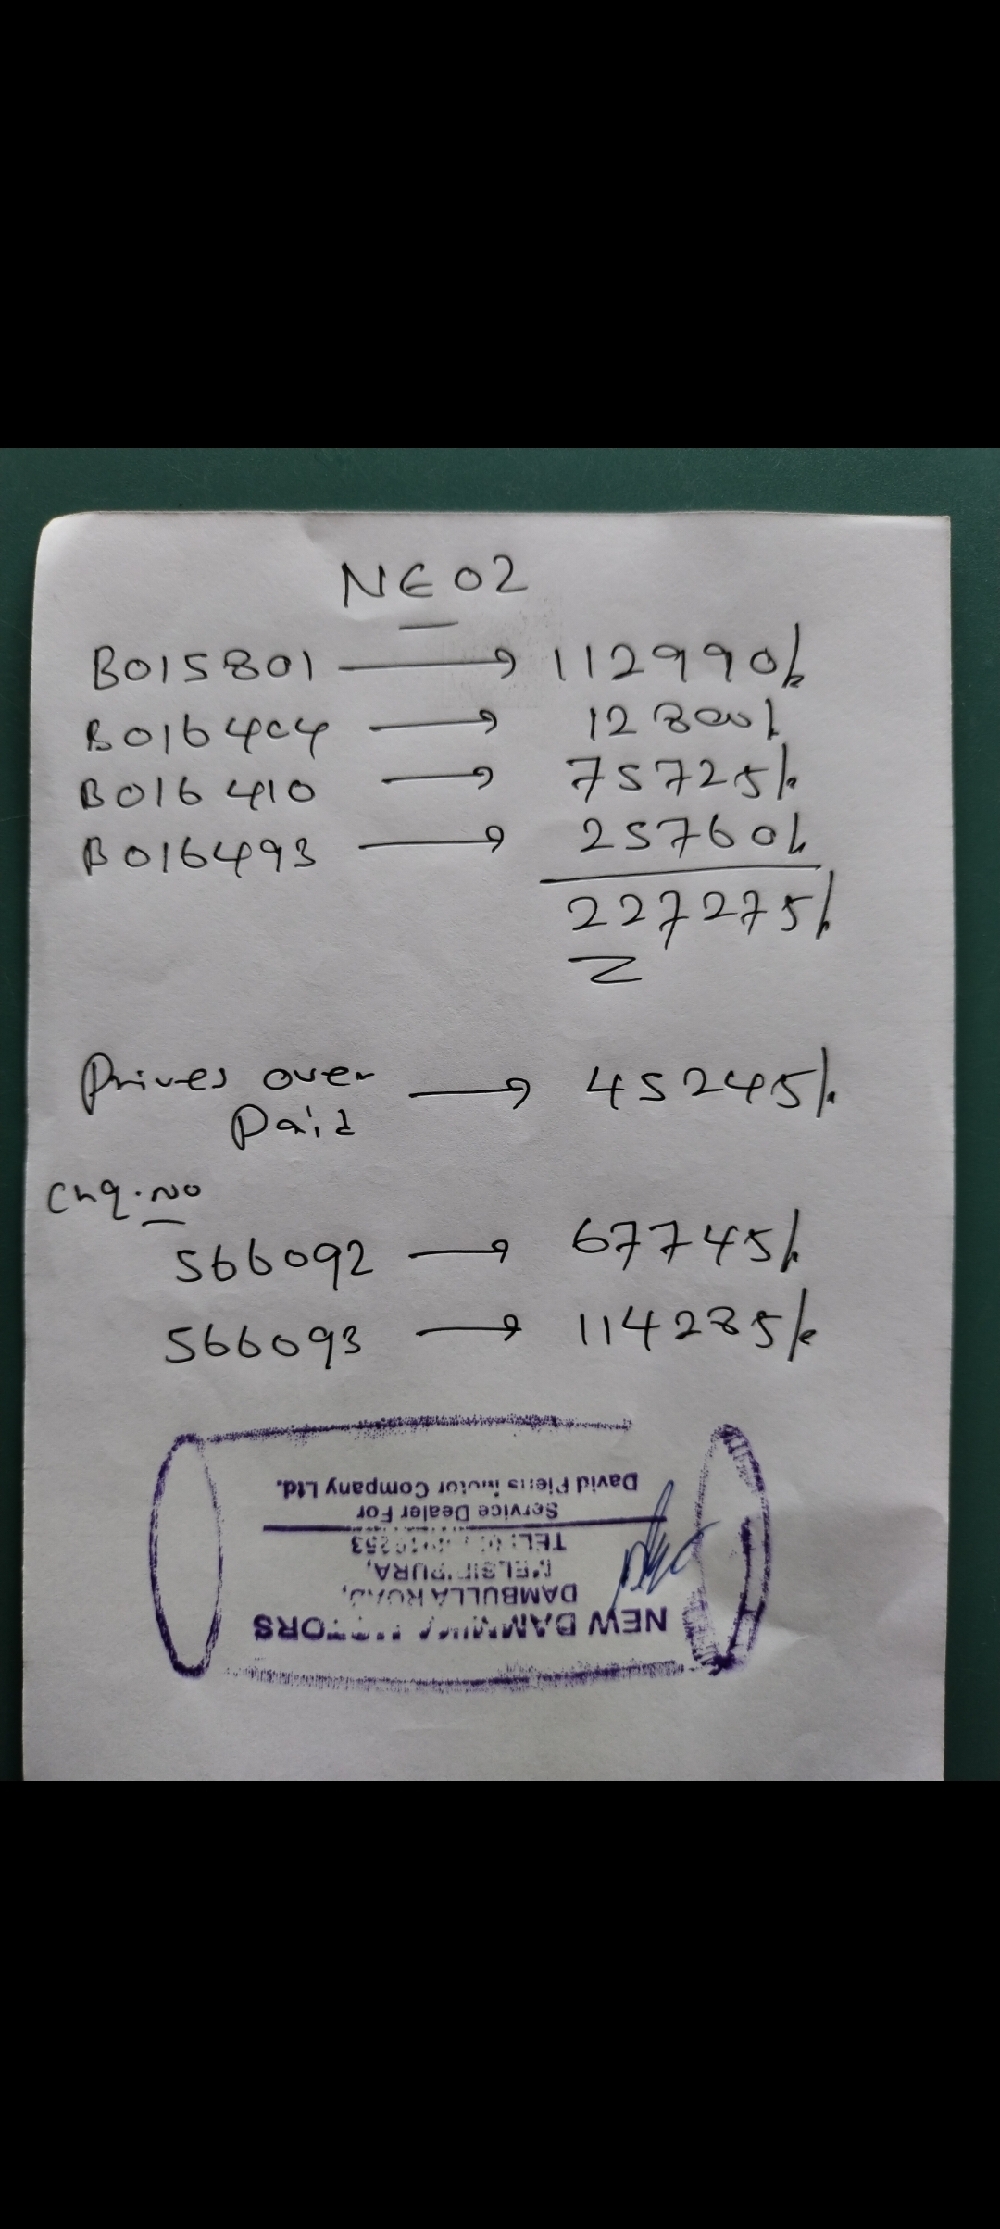 NE02
B015801 → 112990/-
B016404 → 12800/-
B016410 → 75725/-
B016493 → 25760/-
227275/-
Prives over → 45245/-
Paid
Chq. No
566092 → 67745/-
566093 → 114285/-
NEW MOTORS
DAMBULLA ROAD,
TEL:
Service Dealer For
David Pieris Motor Company Ltd.